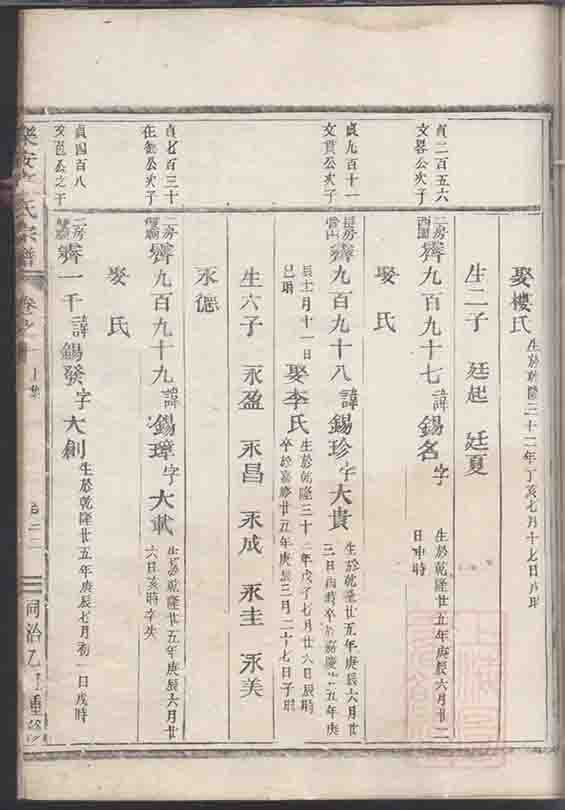 娶樓氏 生於乾隆三十二年丁亥七月十七日戌時
生二子 廷起 廷夏
貞二百五六
文畧公次子
二房 西園 齊九百九十七 諱錫名 字 生於乾隆廿五年庚辰六月廿二
日申時
娶氏
貞九百十一
文貫公次子
長房 齊九百九十八 諱錫珍 字大貴 生於乾隆廿五年庚辰六月廿
三日酉時卒於嘉慶廿五年庚
辰十一月十一日
巳時
娶李氏 生於乾隆三十二年戊子七月廿六日辰時
卒於嘉慶廿五年庚辰三月二十七日子時
生六子 永盈 永昌 永成 永圭 永美
永德
貞七百三十
公次子
二房 齊九百九十九 諱錫璋 字大載 生於乾隆廿五年庚辰六月廿
六日亥時卒失
娶氏
貞四百八
文邑公之子
二房 齊一千 諱錫發 字大創 生於乾隆廿五年庚辰七月初一日戌時
樂安 氏宗譜 卷之 同治乙丑重修